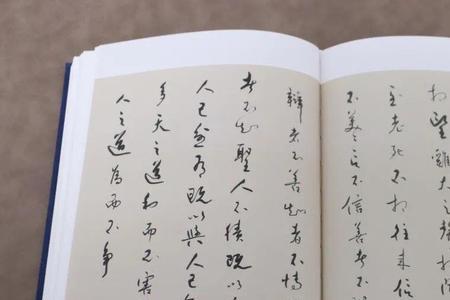 相望雞犬之聲相
至老死不相往来信
不美言不信善者不
辯者不善知者不博
者不知聖人不積既以
人已愈有既以與人已
多天之道利而不害
人之道為而不爭